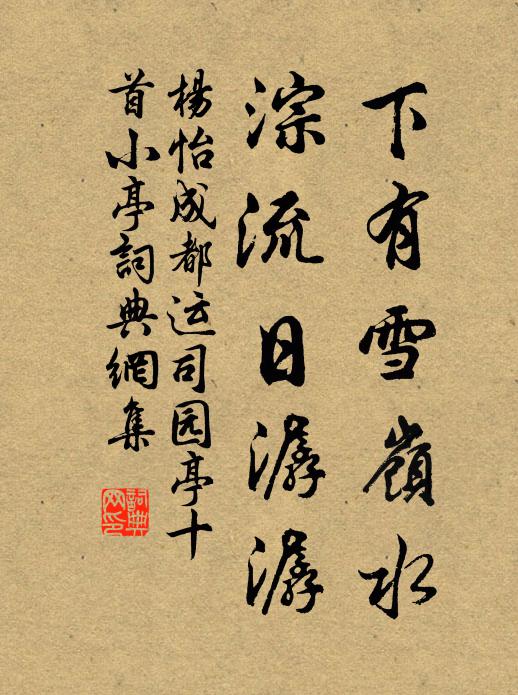 下有雪嶺水
淙流日潺潺
楊怡成都运司园亭十
首小亭詞典網集
詞典網印